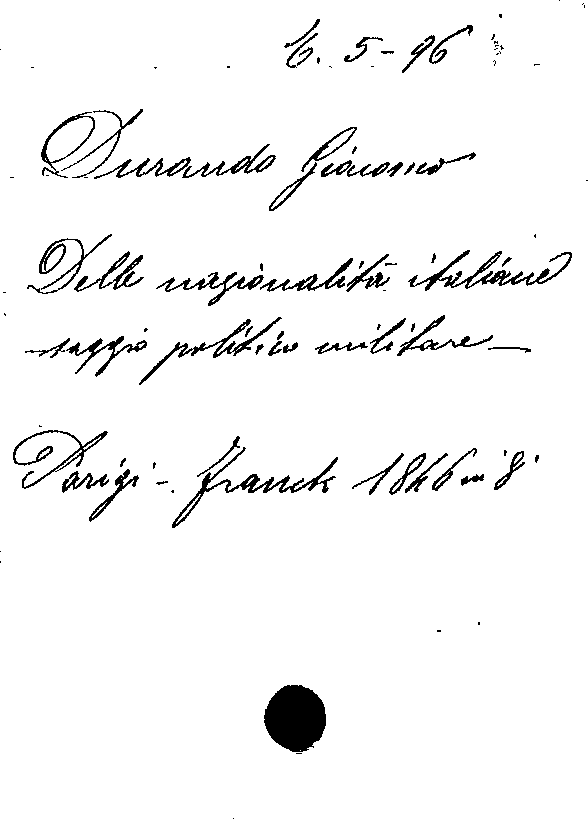 E. 5-96
Durando Giacomo
Delle nazionalità italiane
saggio politico militare -
Parigi - Franck 1846 in 8°